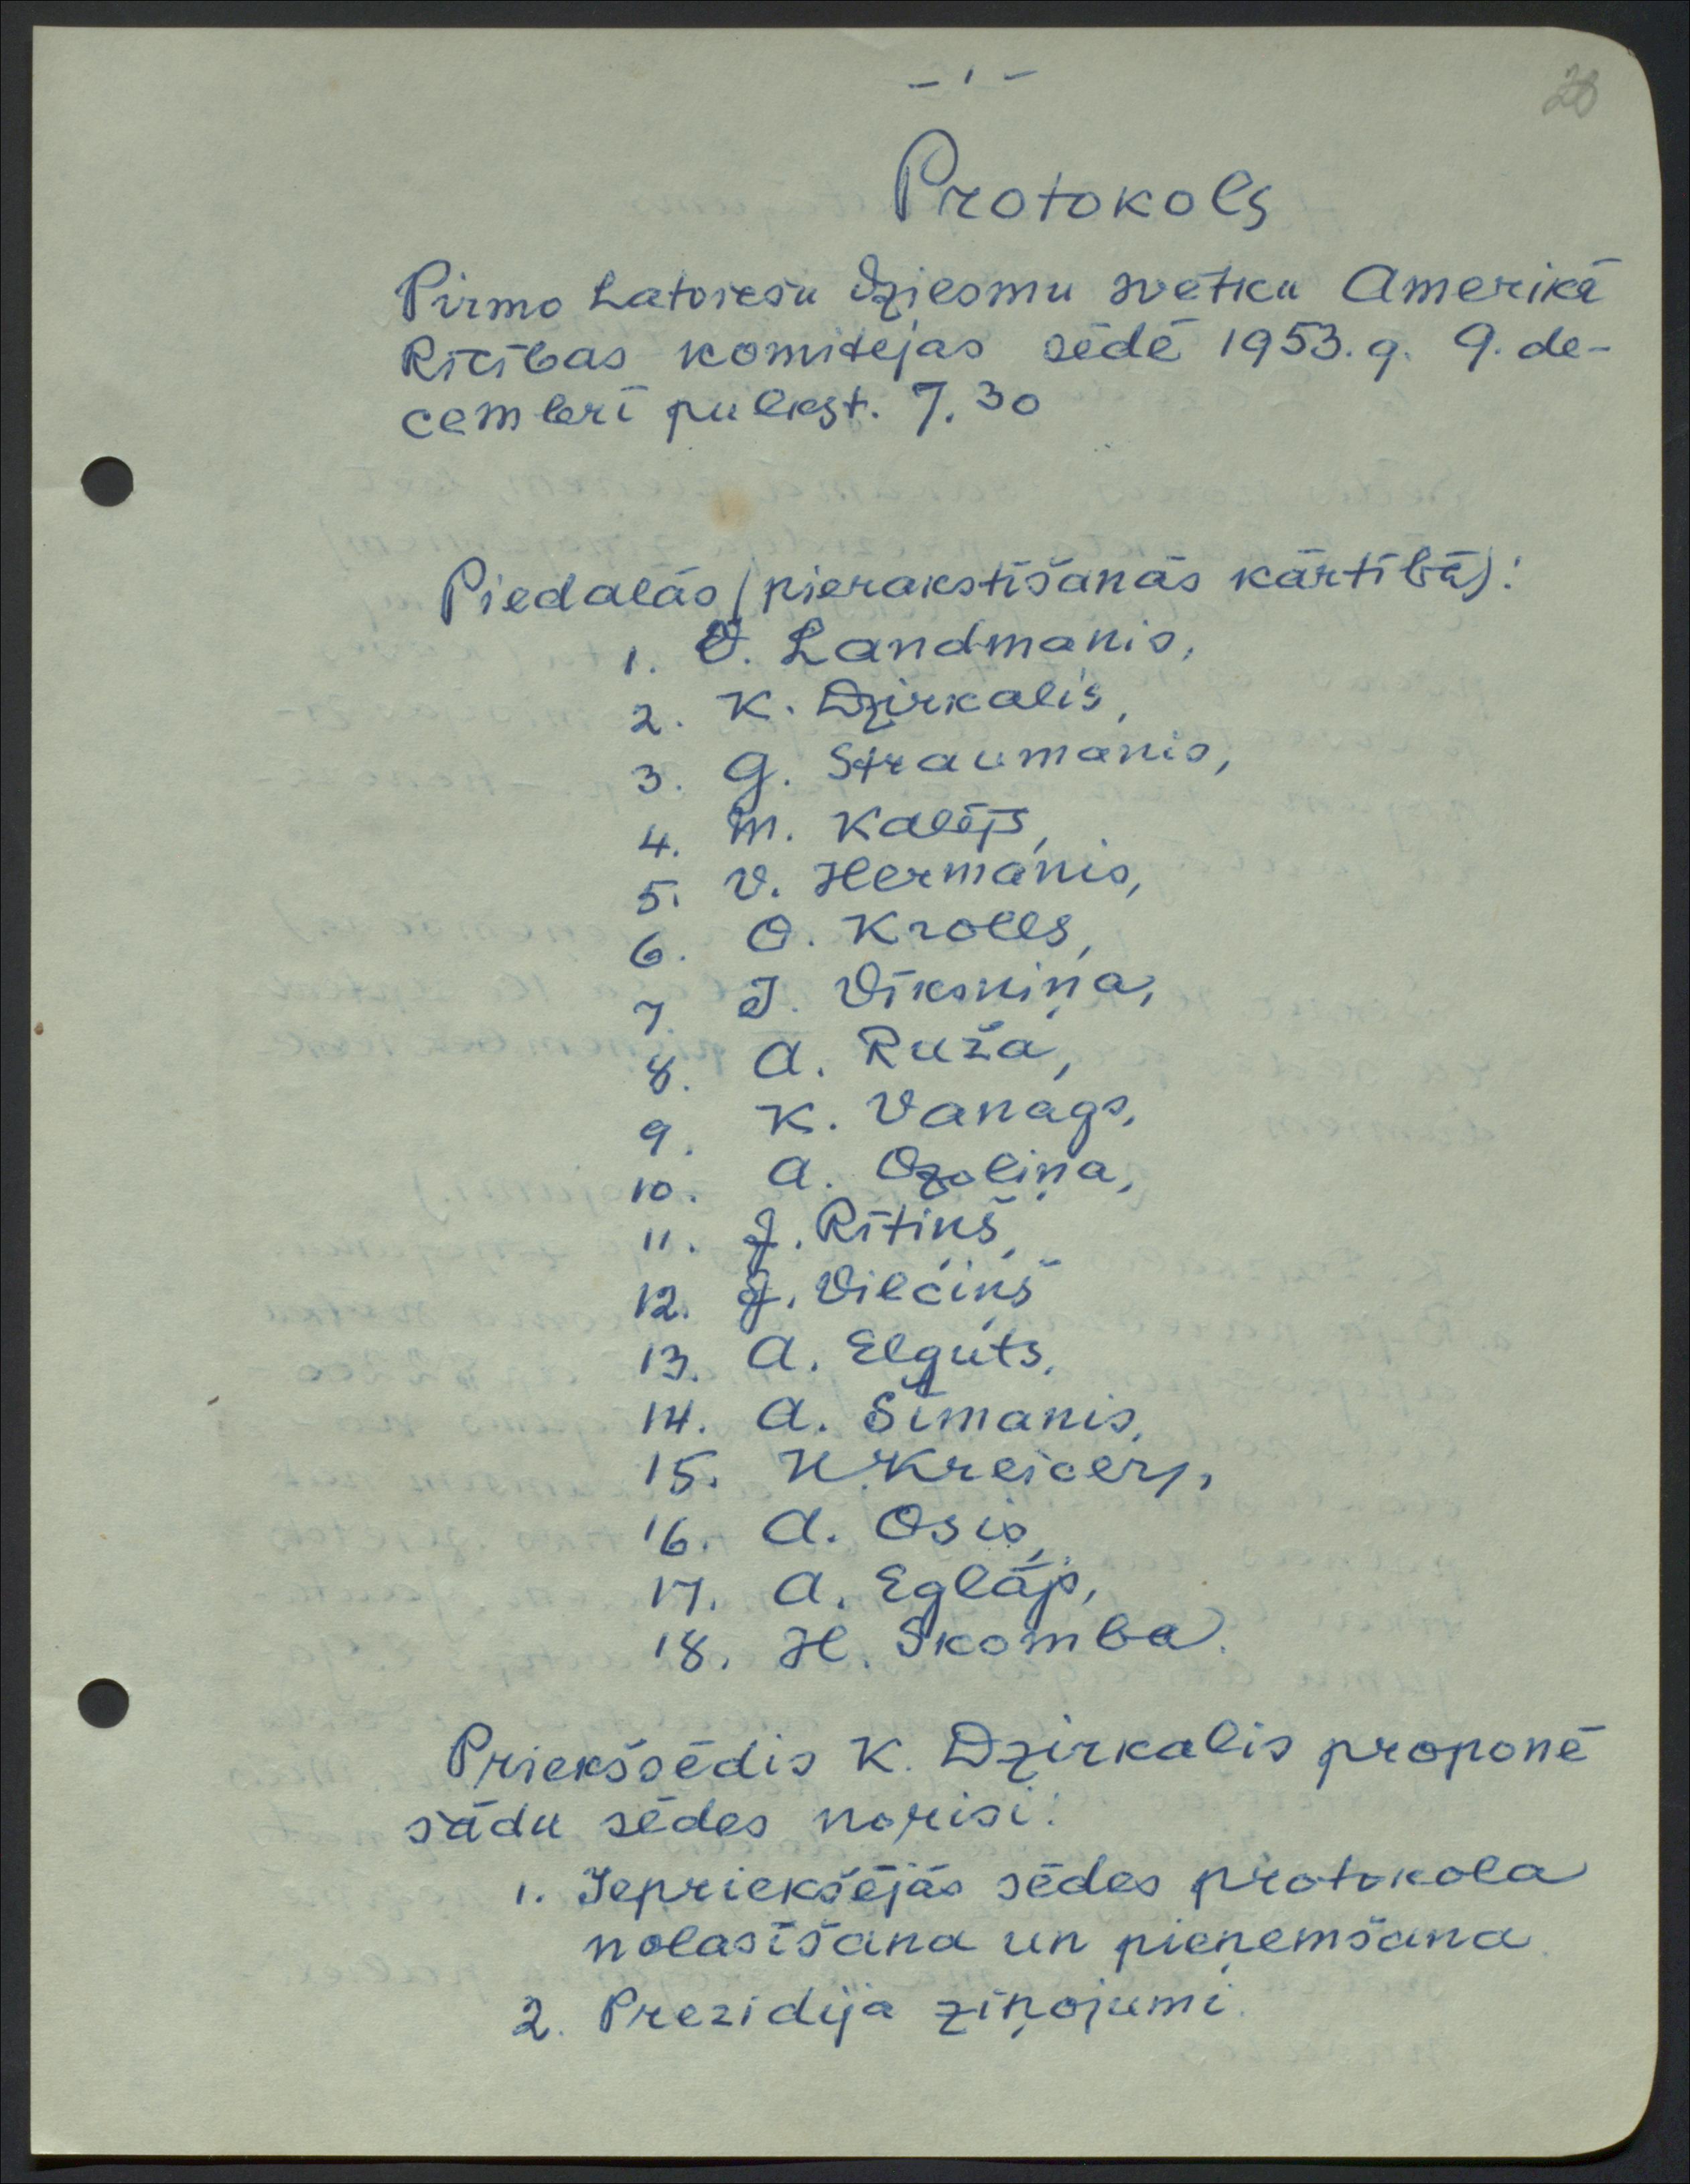 - 1 -
28
Protokols
Pirmo Latviešu Dziesmu svētku Amerikā
Rīcības komitejas sēdē 1953. g. 9. de-
cembrī pulkst. 7.30
Piedalās (pierakstīšanās kārtībā):
1. V. Landmanis,
2. K. Dzirkalis,
3. G. Straumanis,
4. M. Kalējs,
5. V. Hermanis,
6. O. Krolls,
7 I. Vīksniņa,
8. A. Ruža,
9. K. Vanags,
10. A. Ozoliņa,
11. J. Rītiņš,
12. J. Vilciņš
13. A. Elguts,
14. A. Sīmanis,
15. N. Kreicers,
16. A. Osis,
17. A. Eglājs,
18. H. Skomba.
Priekšsēdis K. Dzirkalis proponē
sādu sēdes norisi:
1. Iepriekšējās sēdes protokola
nolasīšana un pieņemšana.
2. Prezidija ziņojumi.